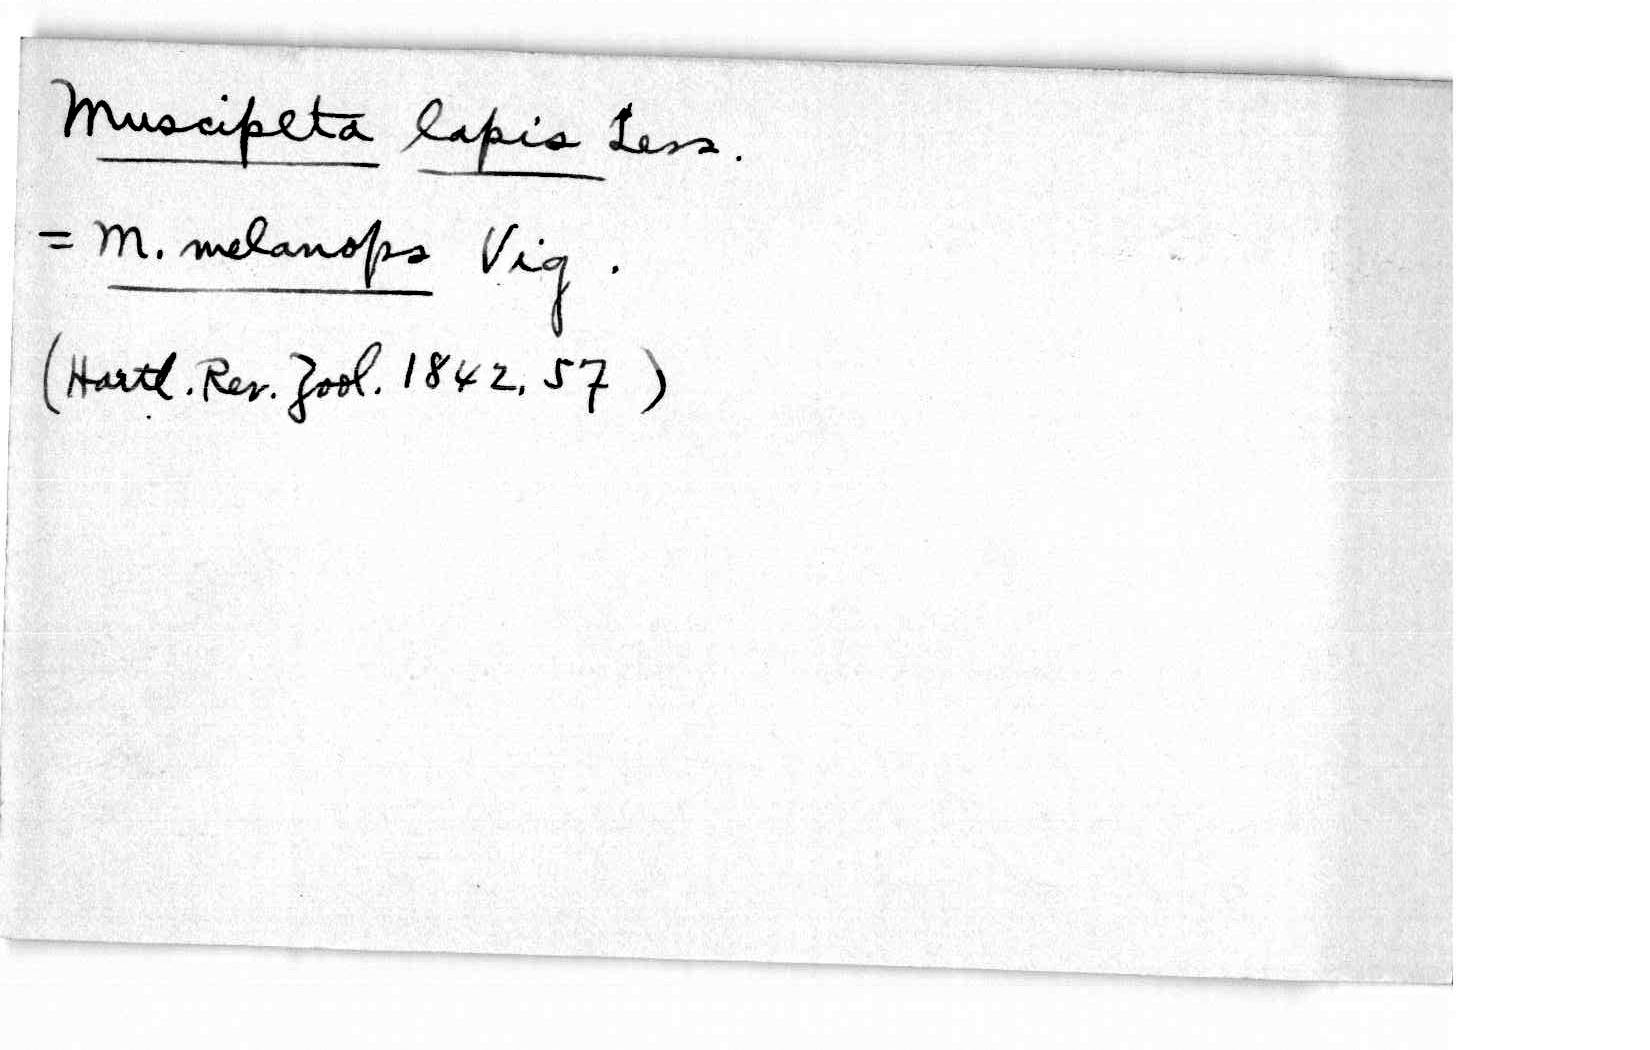 Muscipeta lapis Less.
= M. melanops Vig.
(Hartl. Rev. Zool. 1842, 57)